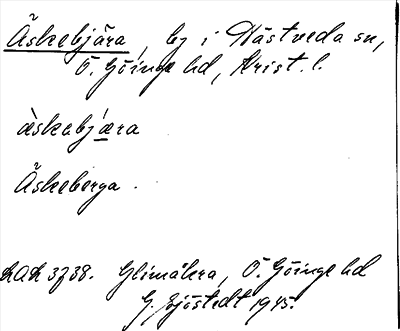 Äskebjära, by i Hästveda sn,
Ö. Göinge hd, Krist. l.
àskabjǽra
Äskeberga.
RAÄ 3738. Glimåkra, Ö. Göinge hd
G. Sjöstedt 1945.